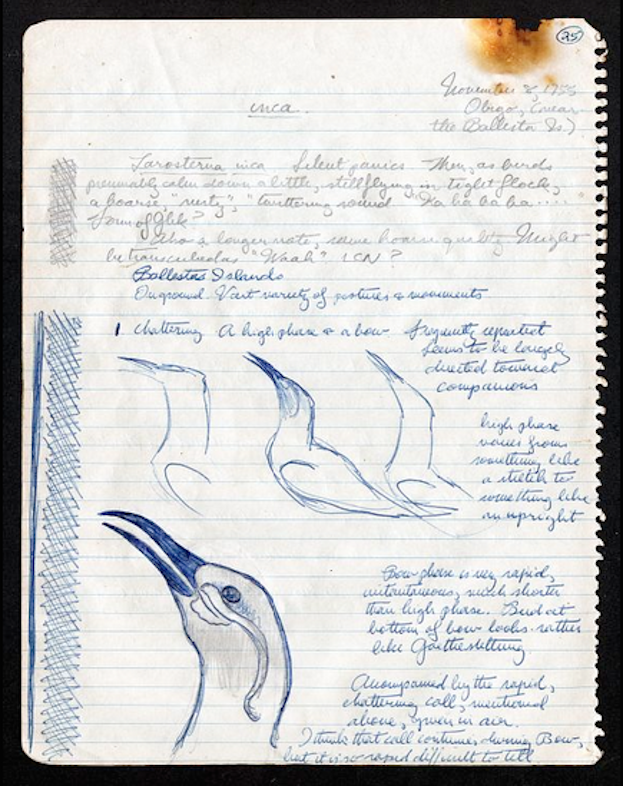 25
November 8, 1955
inca.
Obispo, (near
the Ballesta Is)
Larosterna inca Silent panics Then, as birds
presumably calm down a little, still flying in tight flock,
a hoarse, "rusty", "chattering sound "Ka ba ba ba ....."
Form of
Also a longer note, same hoarse quality Might
be transcribed as "Waah" LCN?
Ballestas Islands
On ground. Vast variety of postures & movements
1 Chattering A high phase & a bow. Frequently repeated
Seems to be largely
directed toward
companions
high phase
varies from
something like
a stretch to
something like
an upright
Bow phase is very rapid,
instantaneous, much shorter
than high phase. Bird at
bottom of bow looks rather
like
Accompanied by the rapid,
chattering call, mentioned
above, given in air.
I think that call continues during Bow,
but it is so rapid difficult to tell